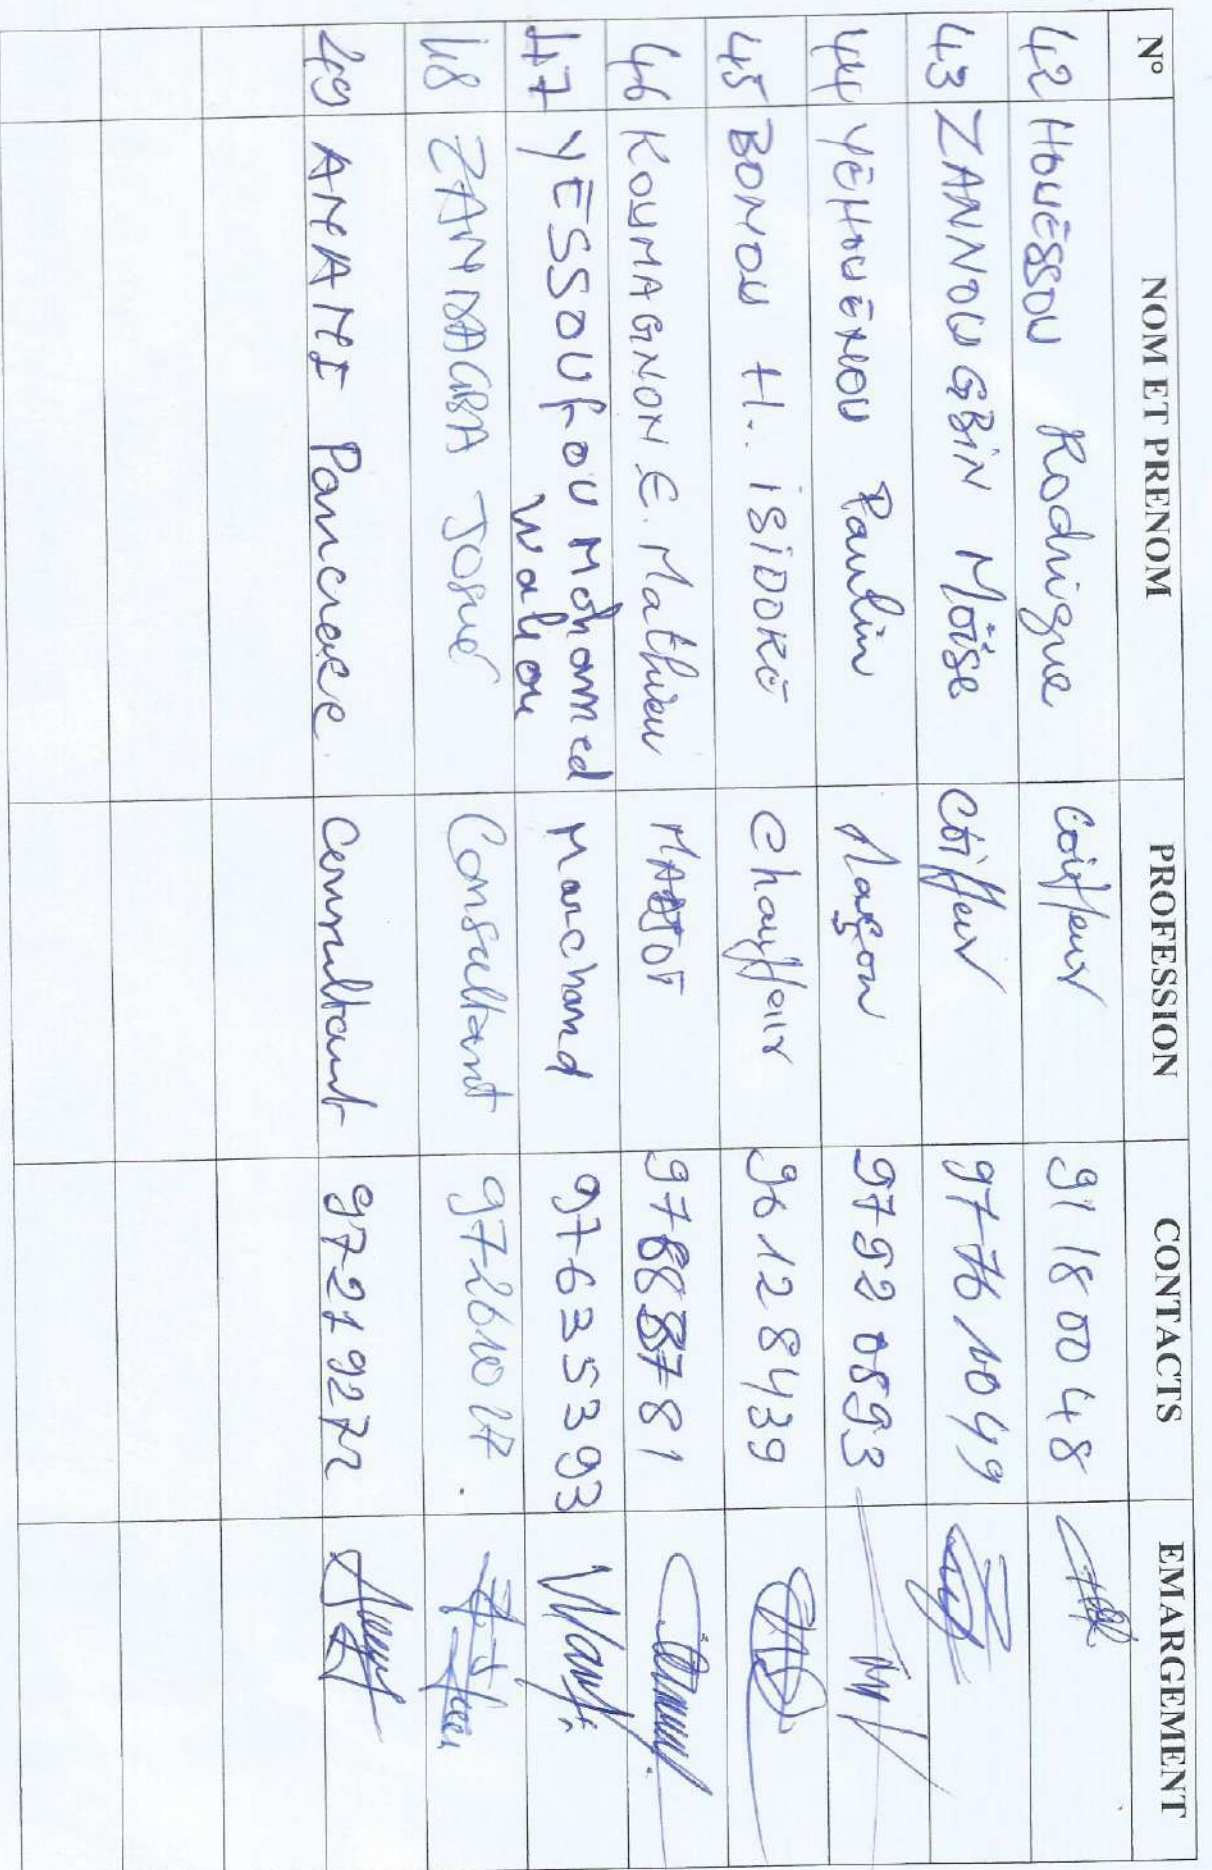 N° NOM ET PRENOM PROFESSION CONTACTS EMARGEMENT
42 HOUÉSSOU Rodrigue Coiffeur 91 18 00 48
43 ZANNOU GBIN Moïse Coiffeur 97 76 10 49
44 YÉHOUÉNOU Paulin Maçon 97 92 08 93
45 BONOU H. ISIDORE Chauffeur 96 12 84 39
46 KOUMAGNON E. Mathieu 97 88 87 81
47 YESSOUFOU Mohammed Marchand 97 63 53 93
Waliou
48 ZANDAGBA Josué Consultant 97261017.
49 ANANI Pancrace Consultant 97219272